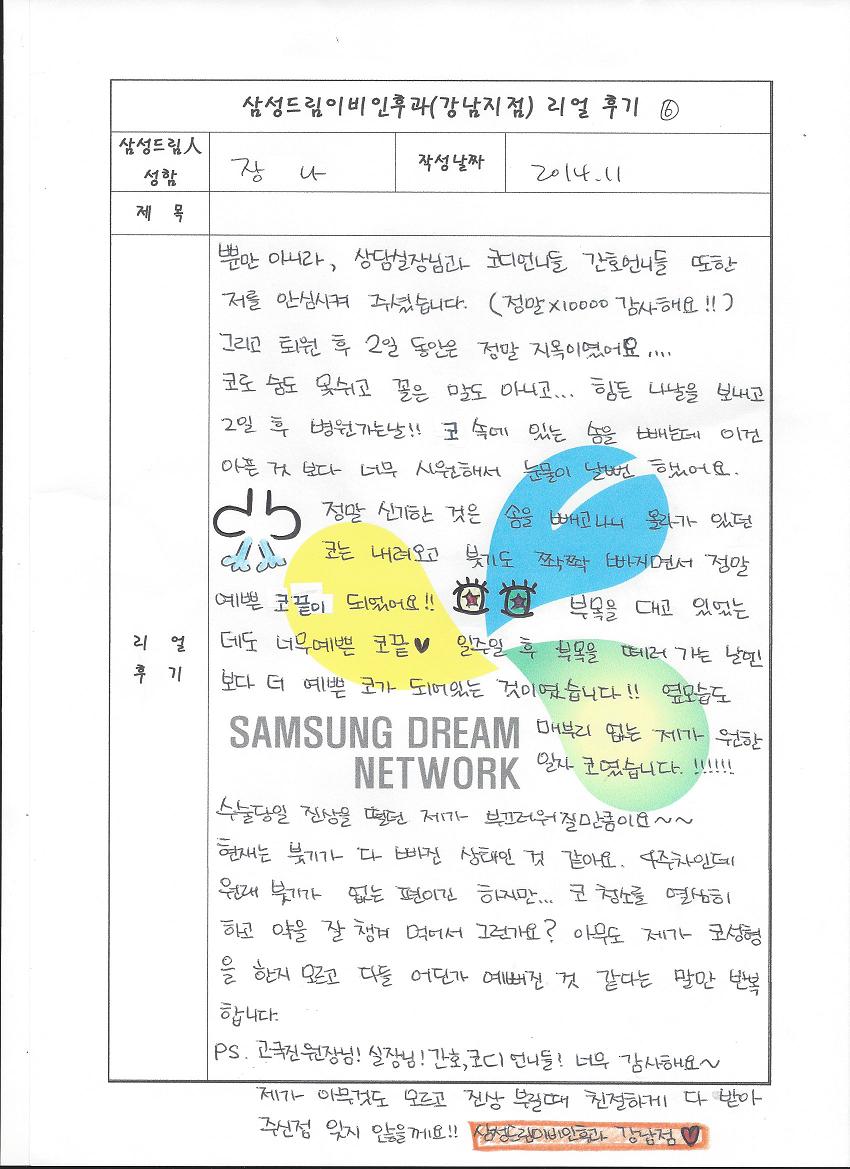 삼성드림이비인후과(강남지점) 리얼 후기 ⑥
삼성드림人
성함
장 나
작성날짜
2014.11
제 목
리 얼
후 기
뿐만 아니라, 상담실장님과 코디언니들 간호언니들 또한
저를 안심시켜 주셨습니다. (정말x10000 감사해요!!)
그리고 퇴원 후 2일 동안은 정말 지옥이였어요....
코로 숨도 못쉬고 꼴은 말도 아니고... 힘든 나날을 보내고
2일 후 병원가는날!! 코 속에 있는 솜을 빼는데 이건
아픈 것 보다 너무 시원해서 눈물이 날뻔 했었어요.
정말 신기한 것은 솜을 빼고나니 올라가 있던
코는 내려오고 붓기도 쫙쫙 빠지면서 정말
예쁜 코끝이 되었어요!! 부목을 대고 있었는
데도 너무예쁜 코끝♥ 일주일 후 부목을 떼러 가는 날엔
보다 더 예쁜 코가 되어있는 것이였습니다!! 옆모습도
매부리 없는 제가 원한
일자 코였습니다.!!!!!!
SAMSUNG DREAM
NETWORK
수술당일 진상을 떨던 제가 부끄러워질만큼이요~~
현재는 붓기가 다 빠진 상태인 것 같아요. 4주차인데
원래 붓기가 없는 편이긴 하지만... 코 청소를 열심히
하고 약을 잘 챙겨 먹어서 그런가요? 아무도 제가 코성형
을 한지 모르고 다들 어딘가 예뻐진 것 같다는 말만 반복
합니다.
PS. 고국진원장님! 실장님! 간호,코디 언니들! 너무 감사해요~
제가 아무것도 모르고 진상 부릴때 친절하게 다 받아
주신점 잊지 않을께요!! 삼성드림이비인후과 강남점♥